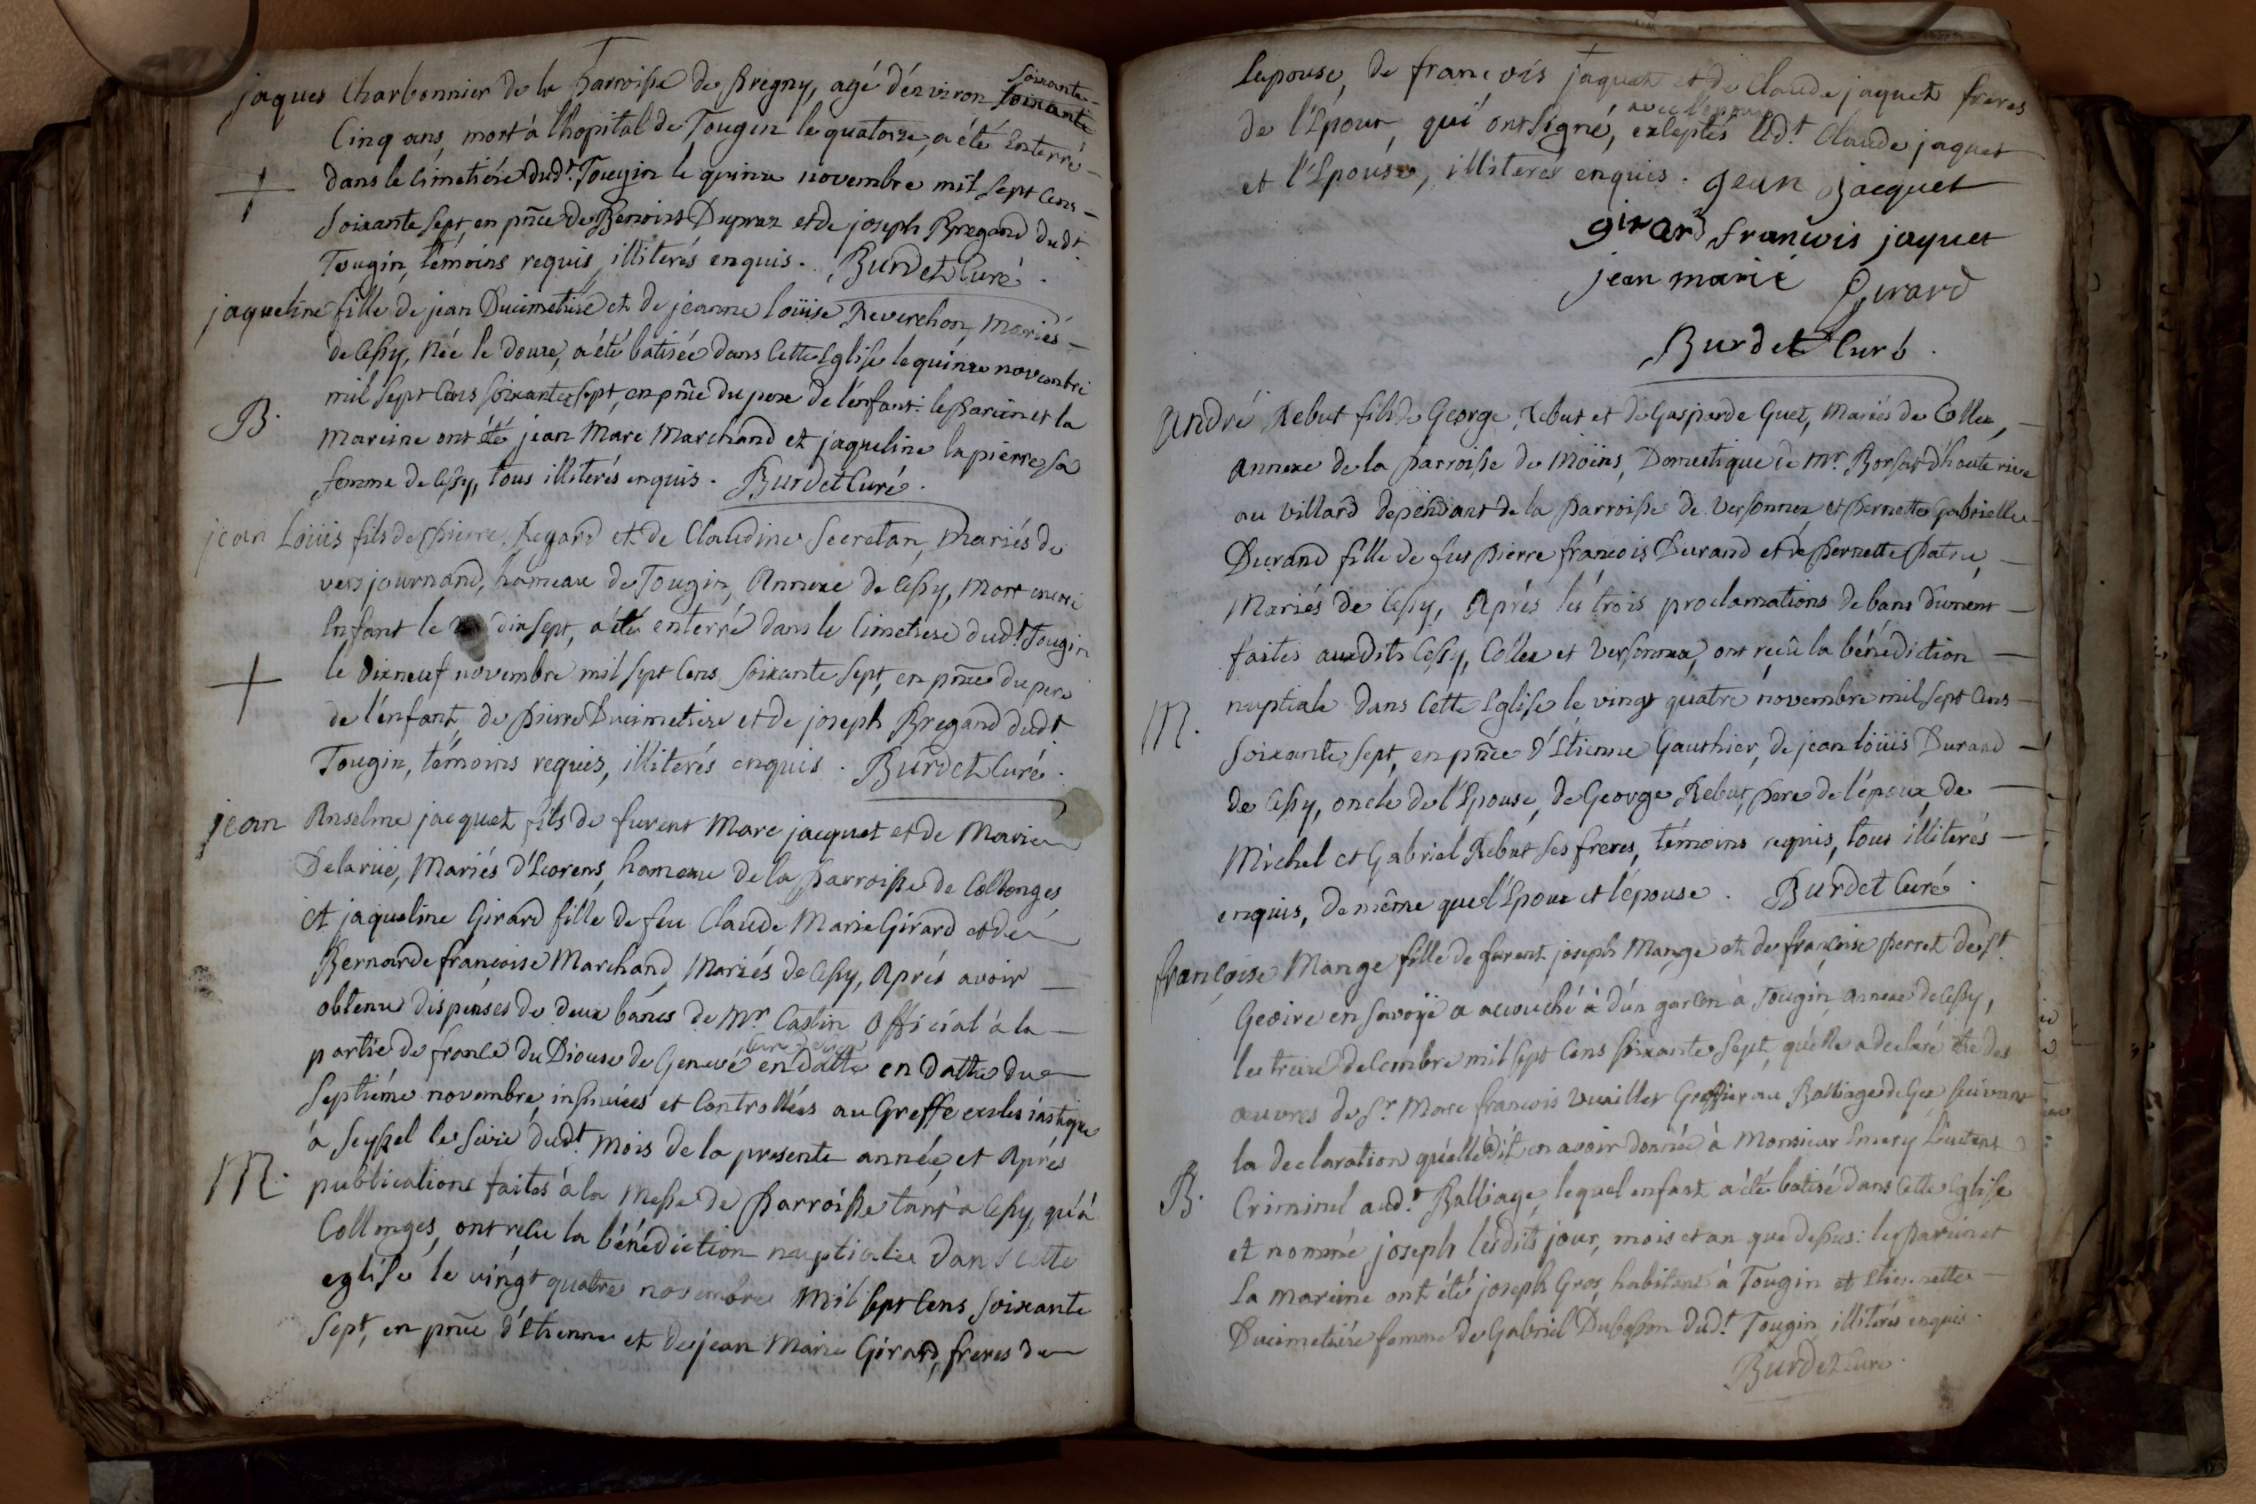 soixante-
jaques Charbonnier de la Parroisse de Pregny, agé d'environ soixante
Cinq ans, mort à l'hopital de Tougin le quatorze, a été Enterré
dans le Cimetiére dudt. Tougin le quinze novembre mil sept Cens
+
soixante sept, en pñce de Benoist Dupraz et de joseph Bregand dudt
Tougin, témoins requis, illiterés enquis. Burdet Curé.
jaqueline fille de jean Ducimetiére et de jeanne Loüise Reverchon, Mariés
de Cessy, Née le douze, a été batisée dans Cette Eglise le quinze novembre
mil sept Cens soixante sept, en pñce du pere de l'enfant: le Parein et la
B.
Mareine ont été jean Marc Marchand et jaqueline lapierre sa
femme de Cessy, tous illiterés enquis. Burdet Curé.
jean Loüis fils de Pierre Regard et de Claudine Secretan, Mariés de
vers journand, hameau de Tougin, Annexe de Cessy, Mort encore
Enfant le dix sept, a été enterré dans le Cimetiere dudt. Tougin
le dixneuf novembre mil sept Cens soixante sept, en pñce du pere
+
de l'enfant, de Pierre Ducimetiere et de joseph Bregand dudt
Tougin, témoins requis, illiterés enquis. Burdet Curé.
jean Anselme jacquet fils de furent Marc jacquet et de Marie
Delarüe, Mariés d'Ecorens, hameau de la Parroisse de Collonges
et jaqueline Girard fille de feu Claude Marie Girard et de
Bernarde françoise Marchand, Mariés de Cessy, Aprés avoir
obtenu dispenses de deux bancs de Mr. Castin Official à la
partie de france du Diocese de Genevé en datte en datte du
septiéme novembre, insinuées et Controllées au Greffe ecclesiastique
à Seyssel le seize dudt. mois de la presente année, et Aprés
M.
publications faites à la Messe de Parroisse tant à Cessy, qu'à
Collonges, ont reçu la bénédiction nuptiale dans cette
eglise le vingt quatre novembre mil sept Cens soixante
sept, en pñce d'Etienne et de jean Marie Girard, freres de
L'epouse, de françois jaquet et de Claude jaquet freres
avec l'epouse
de l'Epoux, qui ont signé, exceptés ledt. Claude jaquet
et l'Epouse, illiterés enquis. jean jacquet
girard françois jaquet
jean marie Girard
Burdet Curé.
André Rebut fils de George Rebut et de Gasparde Guet, Mariés de Collex,
Annexe de la Parroisse de Moëns, Domestique de Mr. Borsat d'hauterive
au Villard dépendant de la Parroisse de Versonnex, et Pernette Gabrielle
Durand fille de feu Pierre françois Durand et de Pernette Patru,
Mariés de Cessy, Aprés les trois proclamations de bans dument
faites auxdits Cessy, Collex et Versonnex, ont reçû la bénédiction
M.
nuptiale dans Cette Eglise le vingt quatre novembre mil sept Cens
soixante sept, en pñce d'Etienne Gauthier, de jean Loüis Durand
de Cessy, oncle de l'Epouse, de George Rebut, pere de l'époux, de
Michel et Gabriel Rebut ses freres, témoins requis, tous illiterés
enquis, de même que l'Epoux et l'épouse. Burdet Curé.
françoise Mange fille de furent joseph Mange et de françoise Perret de St.
Geoire en Savoÿe a accouché à d'un garcon à Tougin, annexe de Cessy,
le treize decembre mil sept Cens soixante sept, qu'elle a declaré être des
œuvres de Sr. Marc françois Vuaillet Greffier au Balliage de Gex suivant
la declaration qu'elle dit en avoir donnée à Monsieur Emery Lieutent
B.
Criminel audt. Balliage, lequel enfant a été batisé dans Cette Eglise
et nommé joseph lesdits jour, mois et an que dessus: le Parein et
La Mareine ont été joseph Gros, habitant à Tougin et Etiennette
Ducimetiére femme de Gabriel Dubosson dudt. Tougin illiterés enquis.
Burdet Curé.